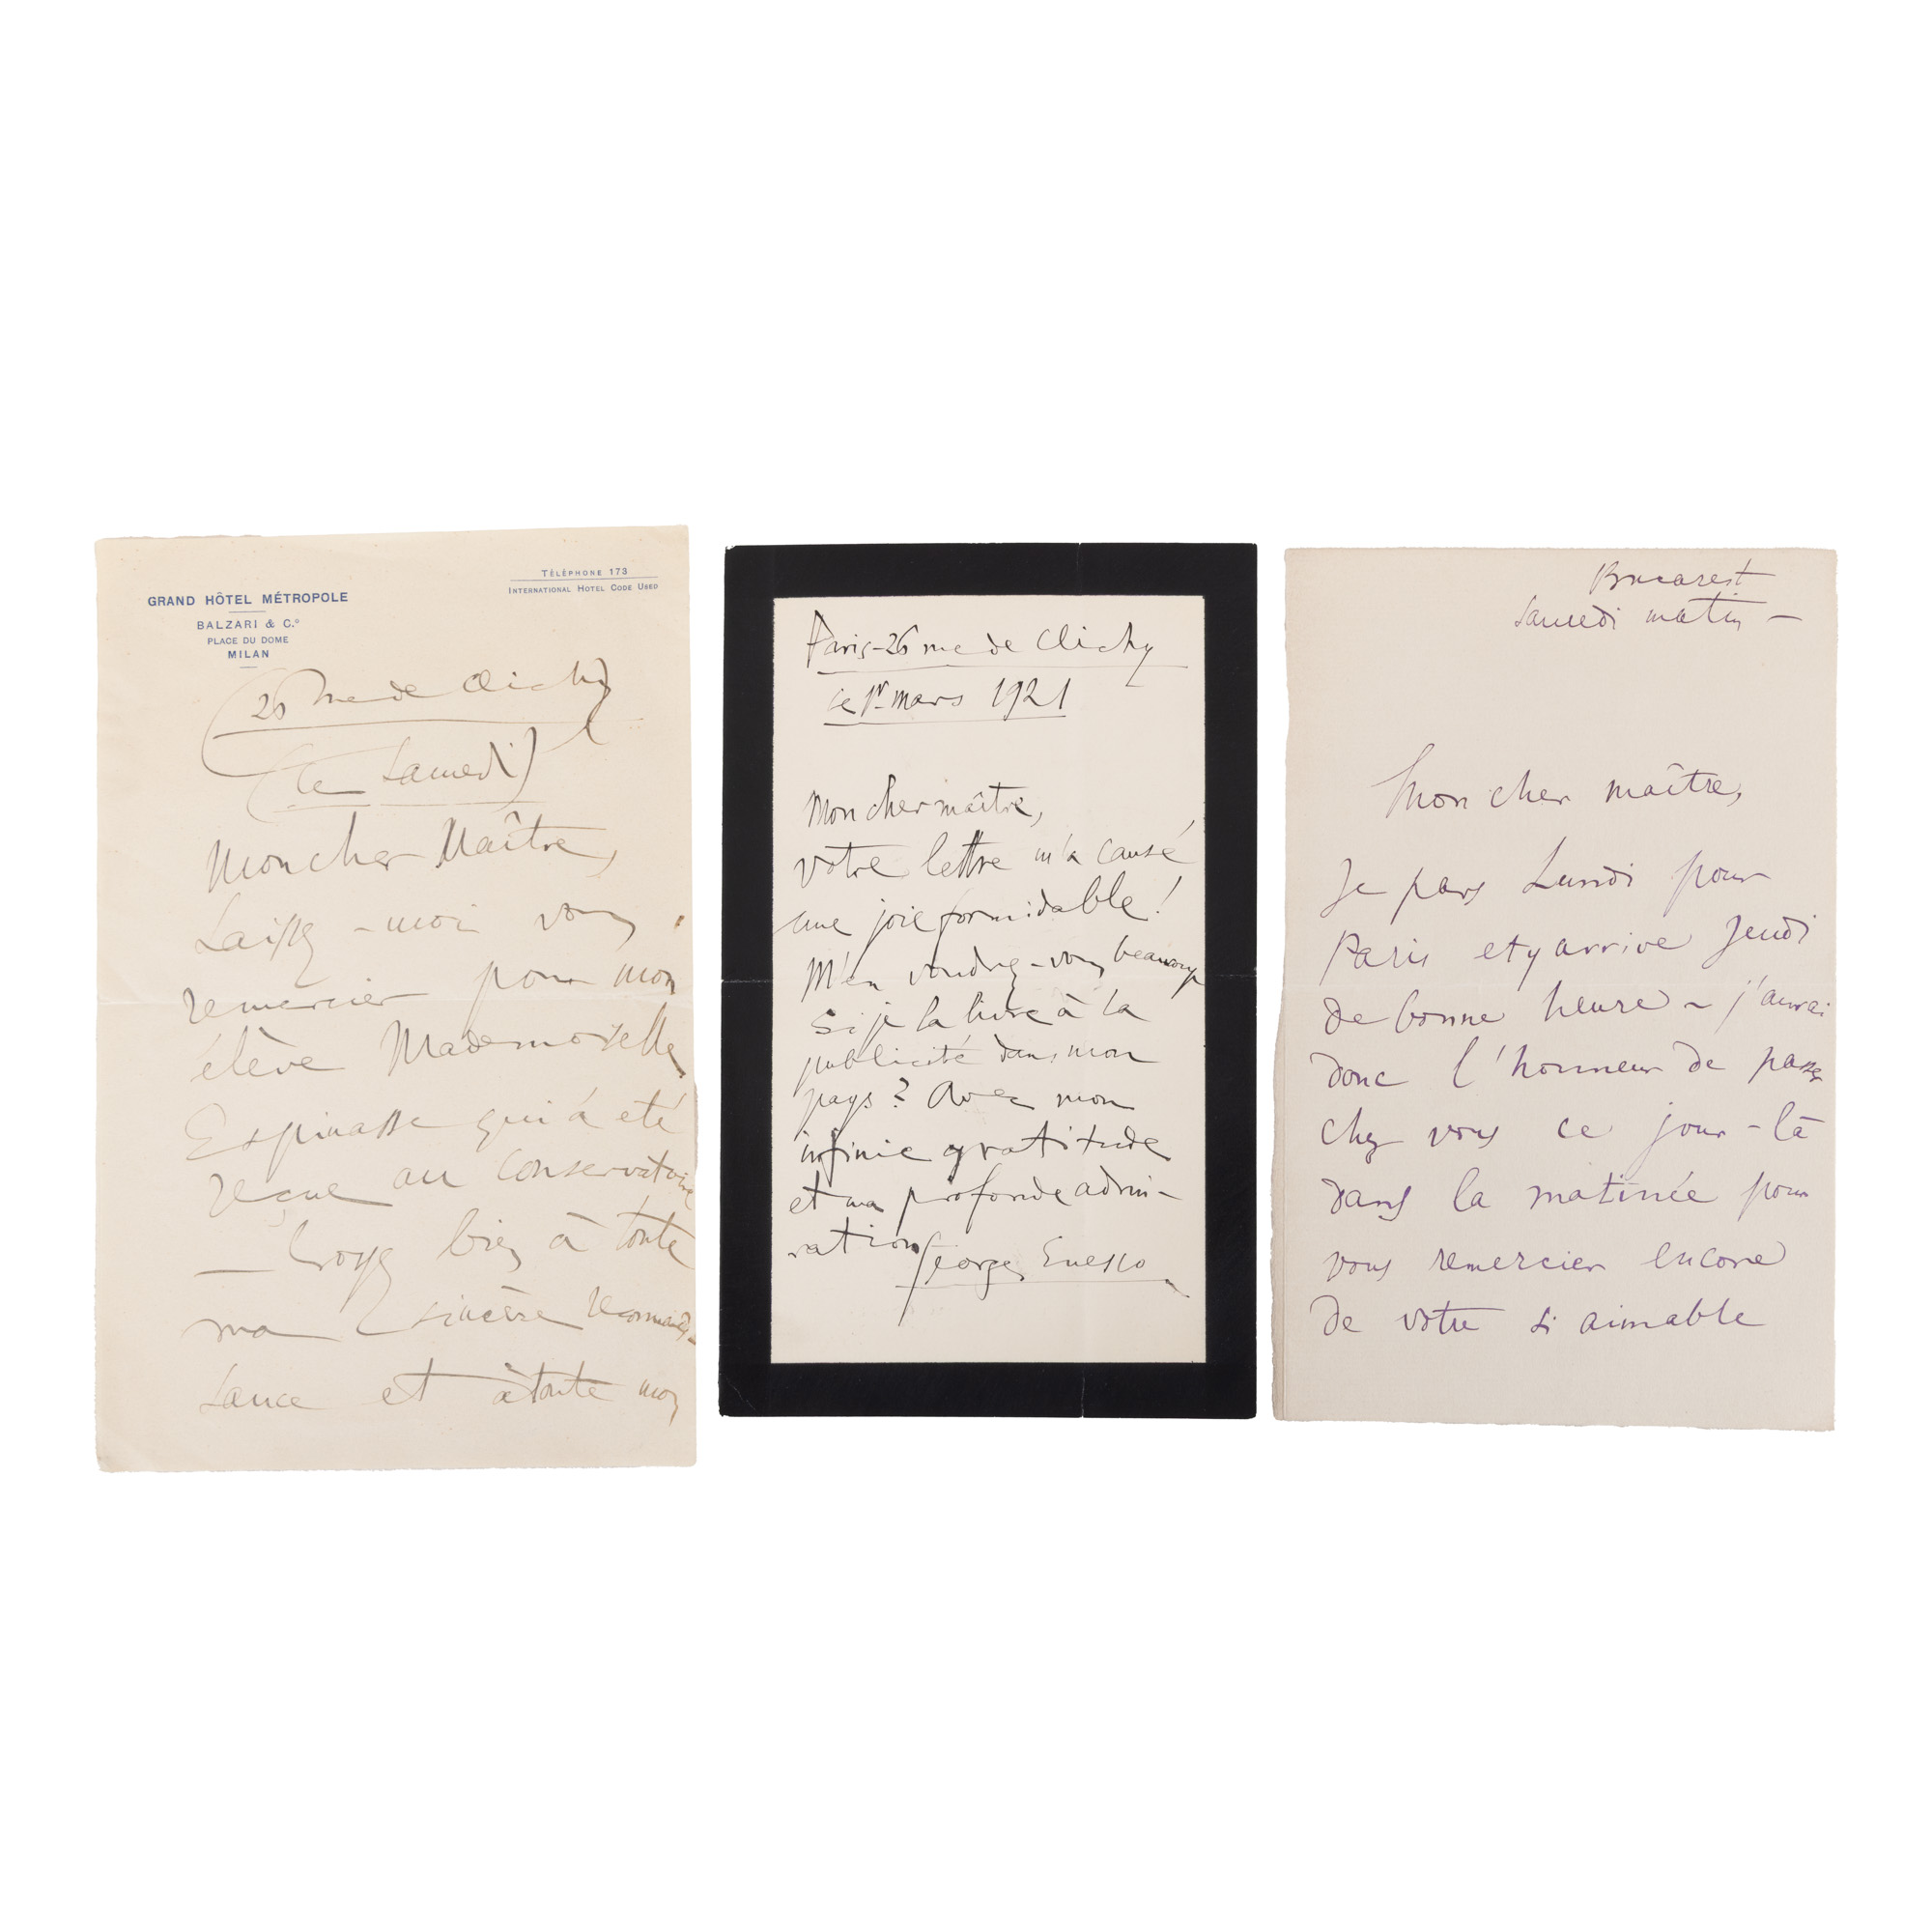 GRAND HÔTEL MÉTROPOLE
BALZARI & C.º
PLACE DU DOME
MILAN
TÉLÉPHONE 173
INTERNATIONAL HOTEL CODE USED
(26 rue de Clichy)
(le Samedi)
Mon cher Maître,
Laissez-moi vous
remercier pour mon
élève Mademoiselle
Espinasse qui a été
reçue au Conservatoire
— Croyez bien à toute
ma sincère reconnais-
sance et à toute mon
Paris-26 rue de Clichy
ce 1er mars 1921
Mon cher maître,
votre lettre m'a causé
une joie formidable!
M'en voudrez-vous beaucoup
si je la livre à la
publicité dans mon
pays? Avec mon
infinie gratitude
et ma profonde admi-
ration Georges Enesco
Bucarest
Samedi matin —
Mon cher maître,
Je pars Lundi pour
Paris et y arrive Jeudi
de bonne heure - j'aurai
donc l'honneur de passer
chez vous ce jour-là
dans la matinée pour
vous remercier encore
de votre si aimable